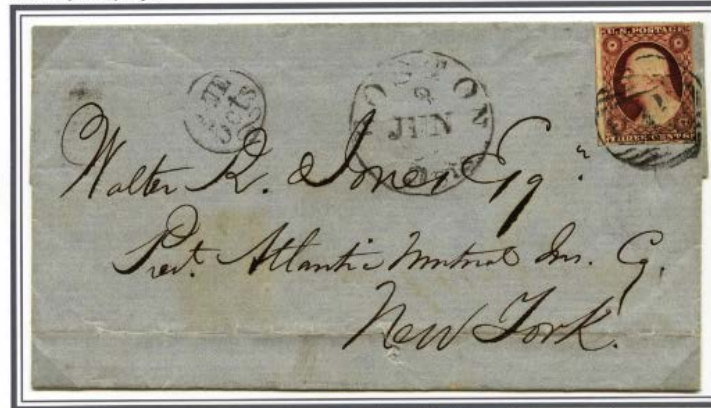 U.S. POSTAGE
THREE CENTS
BOSTON
2
JUN
cts
Walter R. Jones Esqr
Prest. Atlantic Mutual Ins. Co.
New York.